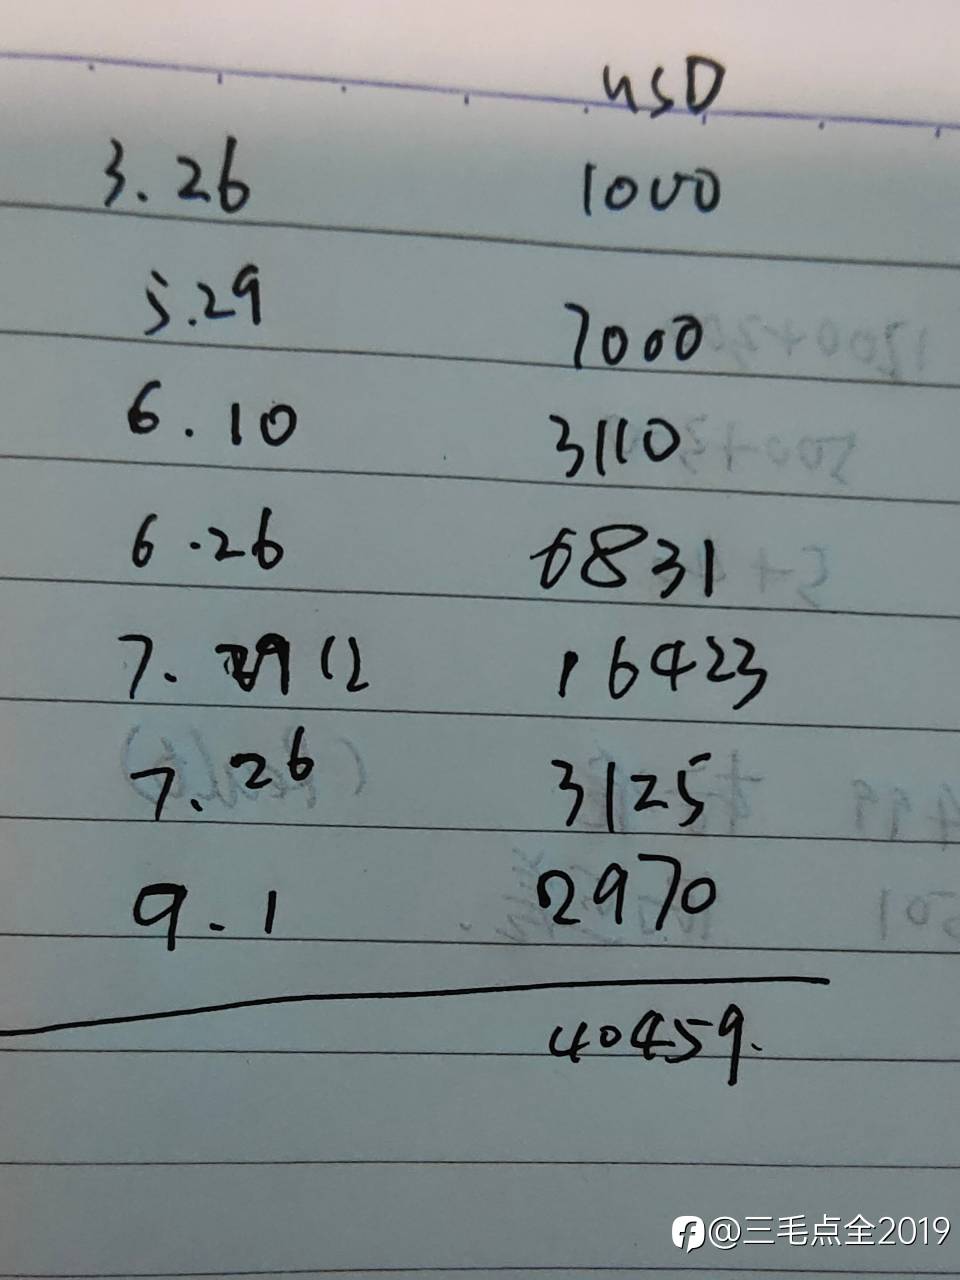 USD
3.26 1000
5.29 7000
6.10 3110
6.26 6831
7. 12 16423
7.26 3125
9.1 2970
40459.
@三毛点全2019